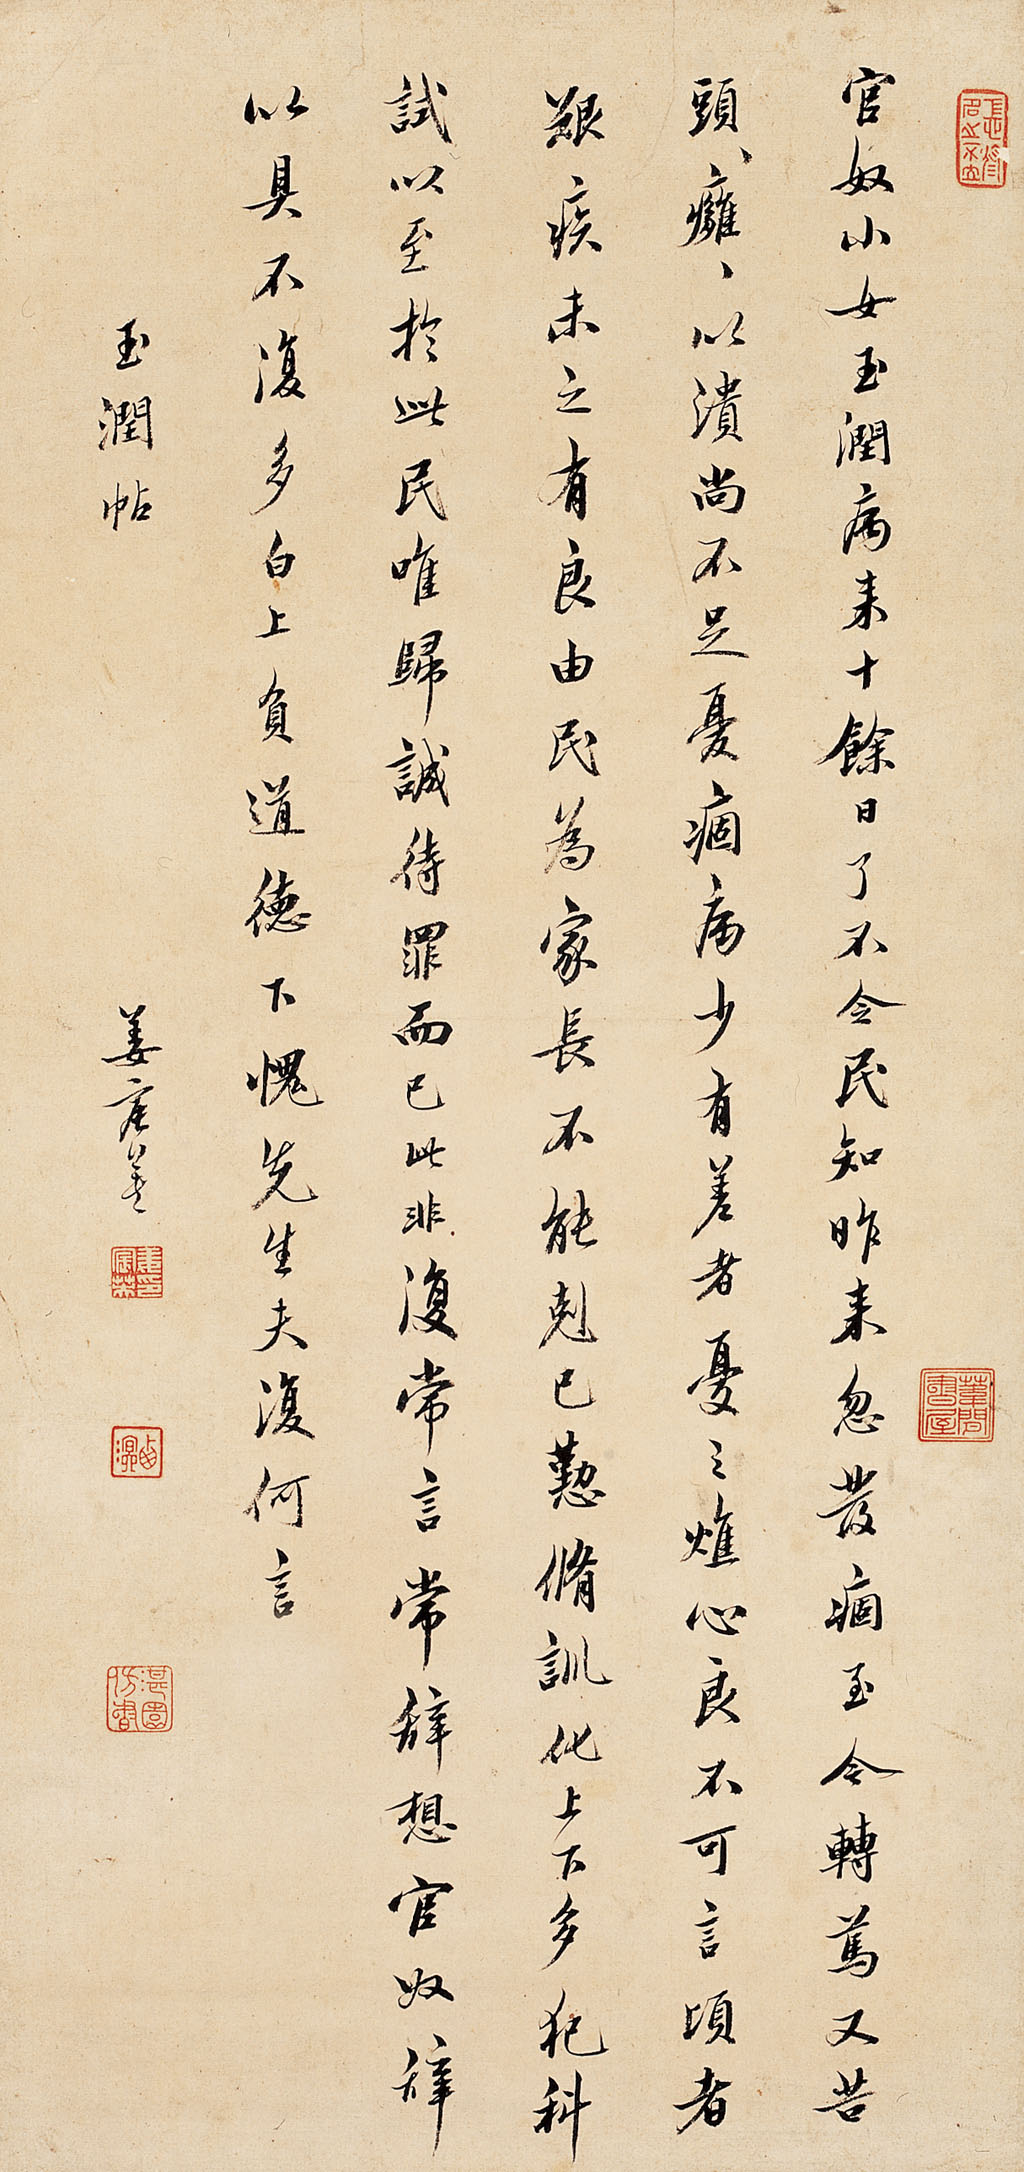 官奴小女玉潤病来十餘日了不令民知昨来忽發痼至今轉篤又苦
頭、癰、以潰尚不足憂痼病少有差者憂之燋心良不可言頃者
艱疾未之有良由民為家長不能剋己懃脩訓化上下多犯科
試以至於此民唯歸誠待罪而已此非復常言常辞想官奴辞
以具不復多白上負道德下愧先生夫復何言
玉潤帖
姜宸英
湛園